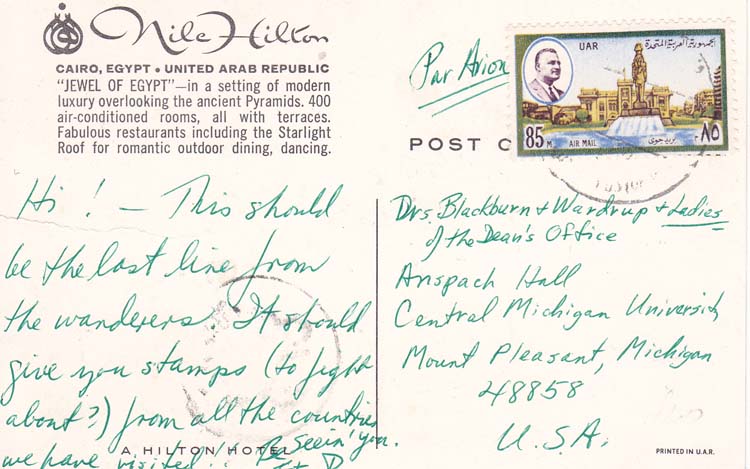 Nile Hilton
CAIRO, EGYPT • UNITED ARAB REPUBLIC
"JEWEL OF EGYPT"—in a setting of modern
luxury overlooking the ancient Pyramids. 400
air-conditioned rooms, all with terraces.
Fabulous restaurants including the Starlight
Roof for romantic outdoor dining, dancing.
Par Avion
POST C
UAR
الجمهورية العربية المتحدة
85 M
AIR MAIL
بريد جوى
٨٥ م
Hi! — This should
be the last line from
the wanderers. It should
give you stamps (to fight
about?) from all the countries
we have visited!
Be seein' you.
Drs. Blackburn & Wardrup & Ladies
of the Dean's Office
Anspach Hall
Central Michigan University
Mount Pleasant, Michigan
48858
U.S.A.
A HILTON HOTEL
PRINTED IN U.A.R.